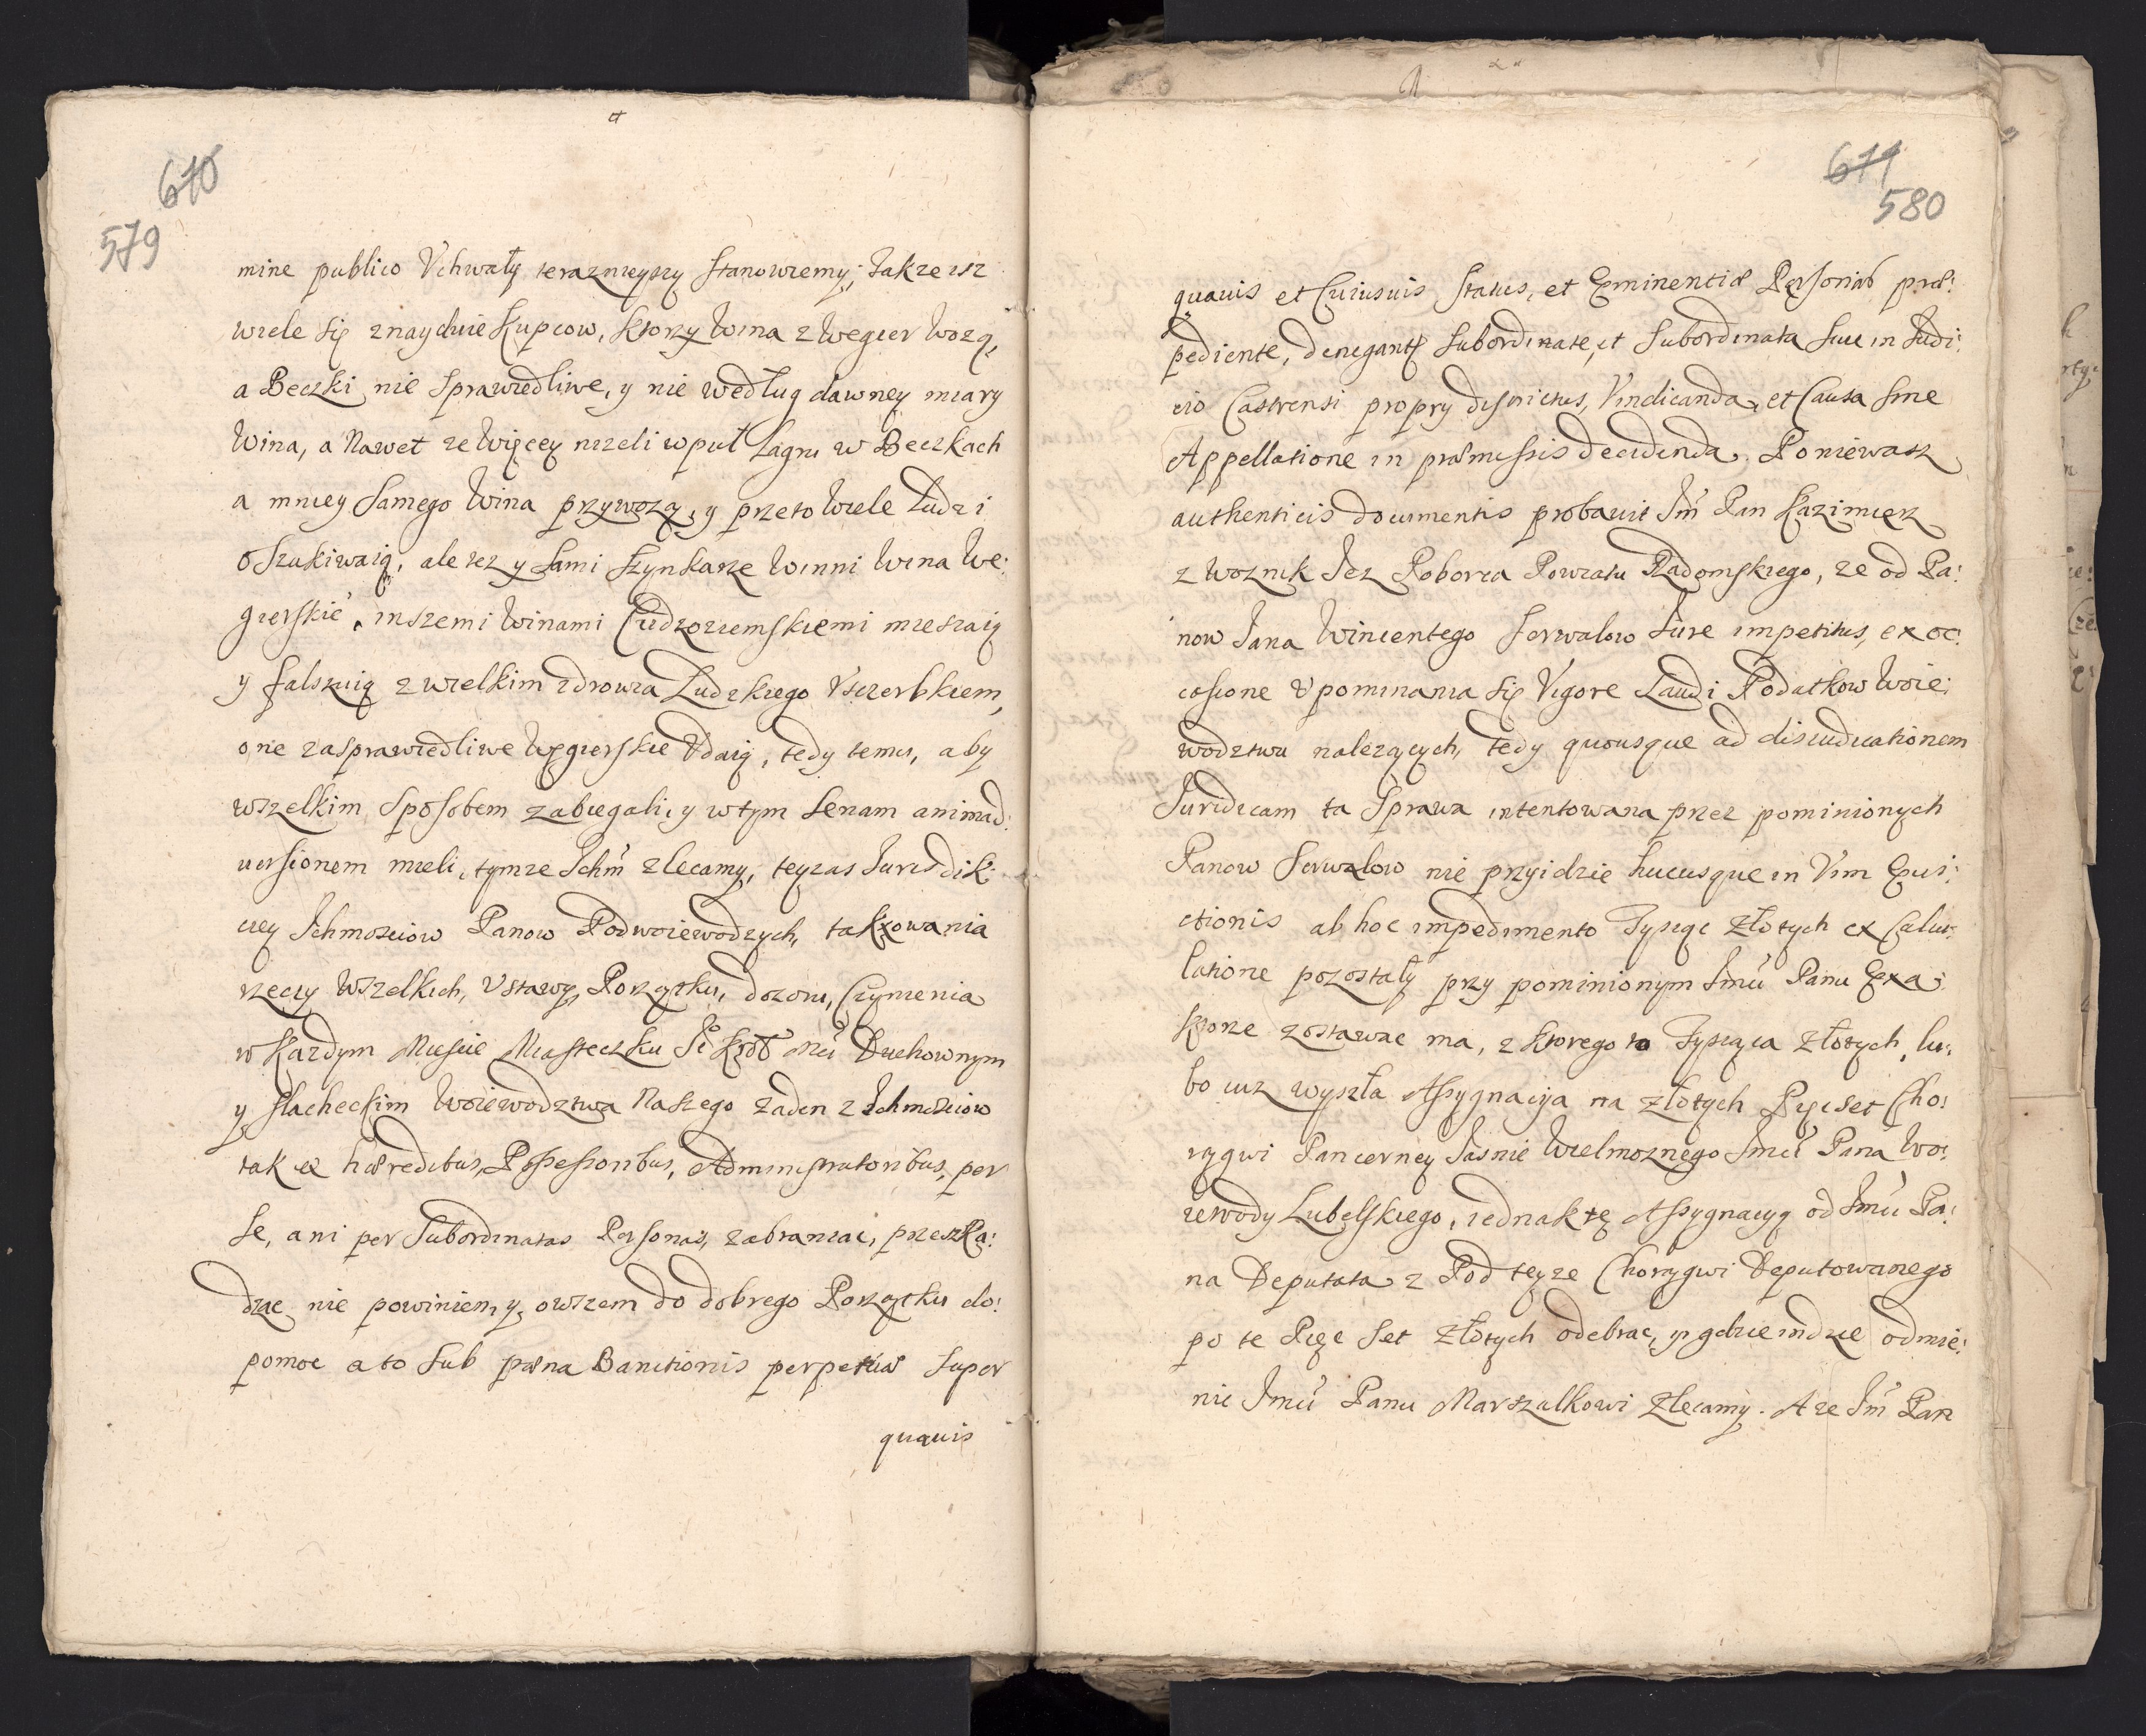 610
579
mine publico Vchwały teraznieyszy stanowiemy; Takze isz
wiele się znayduie Kupcow, ktorzy Wina z Wegier Wozą,
a Beczki nie Sprawiedliwe, y nie według dawney miary
Wina, a Nawet ze Więcey nizeli w puł Lagru w Beczkach
a mniey Samego Wina przywozą, y przeto Wiele Ludzi
oszukiwaią, ale tez y Sami Szynkarze Winni Wina We:
gierskie, inszemi Winami Cudzoziemskiemi mieszaią
y falszuią z wielkim zdrowia Ludzkiego Vszczerbkiem,
one zasprawiedliwe Węgierskie Vdaią, tedy temu, aby
wszelkim Sposobem zabiegali, y w tym Senam animad:
uersionem mieli, tymze Ichm zlecamy, teyzas Jurisdik:
ciey Ichmosciow Panow Podwoiewodzych, takxowania
rzeczy Wszelkich, Vstawy, Porządku, dozoru, Czynienia
w Kazdym Miescie Miasteczku Je Krol Mci Duchownym
y Slacheckim Woiewodztwa Naszego zaden z Ichmosciow
tak ex hæredibus, Possessoribus, Administratoribus, per
Se, ani per Subordinatas Personas, zabraniac, przeszka:
dzac nie powinien, y owszem do dobrego Porządku do:
pomoc a to Sub pæna Banitionis perpetuæ Super
quauis
611
580
quauis et Cuiusuis Status, et Eminentiæ Personas præ:
pediente, denegante Subordinate, et Subordinata Siue in Judi:
cio Castrensi propry districtus, Vindicanda, et Causa Sine
Appellatione in præmissis Decidenda. Poniewasz
authenticis documentis probauit Jm Pan Kazimierz
Zwoznik Jez Poborca Powiatu Radomskiego, ze od Pa:
now Jana Wincentego Serwalow Jure impetitus, ex oc:
casione Vpominania się Vigore Laudi Podatkow Woie:
wodztwu nalezących, tedy quousque ad disiudicationem
Juridicam ta Sprawa intentowana przez pominionych
Panow Serwalow nie przyidzie hucusque in Vim Eui:
ctionis ab hoc impedimento Tysiąc Złotych ex Calcu:
latione pozostały przy pominionym Jmci Panu Exa:
ktorze zostawac ma, z ktorego to Tysiąca Złotych, lu:
bo iuz wyszła Assygnacyja na złotych Pięcset Cho:
rągwi Pancerney Jasnie Wielmoznego Jmci Pana Wo:
iewody Lubelskiego, iednak tę Assygnacyą od Jmci Pa:
na Deputata z Pod teyze Chorągwi Deputowanego
po te Pięc Set Złotych odebrac, y gdzieindzie odmie:
nic Jmci Panu Marszalkowi Zlecamy. A ze Jm Pan